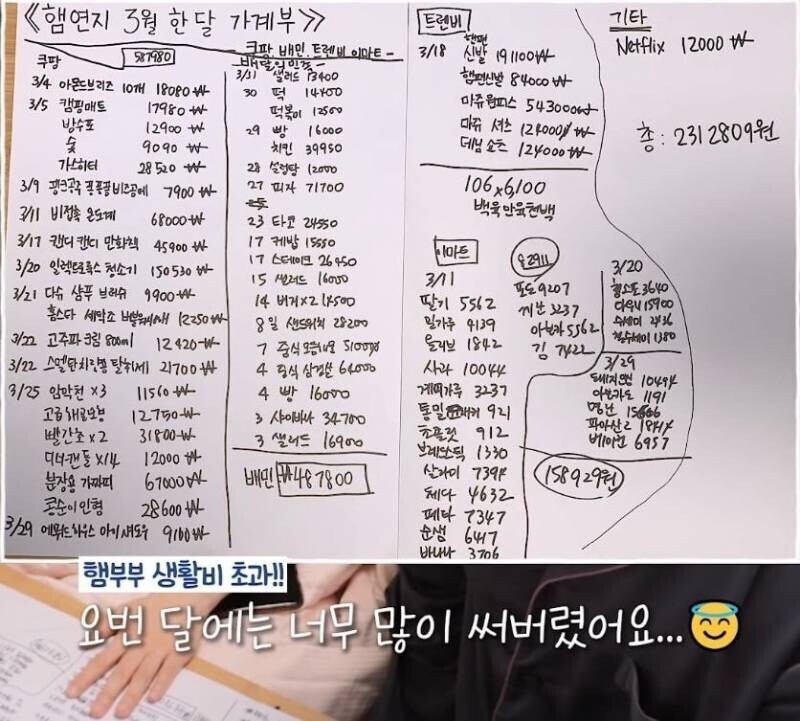 《햄연지 3월 한달 가계부》
쿠팡 587980
3/4 아몬드브리즈 10개 18080₩
3/5 캠핑매트 17980₩
방수포 12900₩
숯 9090₩
가스히터 28520₩
3/9 7900₩
3/11 비접촉 온도계 68000₩
3/17 캔디 캔디 만화책 45900₩
3/20 일렉트로룩스 청소기 150530₩
3/21 다슈 샴푸 브러쉬 9900₩
홈스타 세탁조 12250₩
3/22 고주파 크림 800ml 12420₩
3/22 스멜 탈취제 21700₩
3/25 암막천 ×3 11560₩
고급 해로보봉 12750₩
빨간초 ×2 31800₩
티라캔들 ×14 12000₩
분장용 가짜피 67000₩
콩순이 인형 28600₩
3/29 에뛰드하우스 아이섀도우 9100₩
쿠팡 배민 트렌비 이마트
배달의민족
3/31 샐러드 13400
30 떡 14800
떡볶이 12500
29 빵 16000
치킨 39950
28 설렁탕 12000
27 피자 71700
23 타코 24550
17 케밥 15550
17 스테이크 26450
15 샐러드 16000
14 버거×2 14500
8일 샌드위치 28200
7 중식 51000
4 중식 삼겹살 64000
4 빵 16000
3 샤이바나 34700
3 샐러드 16900
배민 ₩487800
트렌비
3/18 햄편 신발 191100₩
햄편신발 84000₩
마쥬원피스 543000₩
마쥬 셔츠 124000₩
데님 쇼츠 124000₩
106×6,100
백육만육천백
이마트
3/11
딸기 5562
밀가루 4139
올리브 1842
사과 10044
계피가루 3237
통밀 921
초콜릿 912
브레드스틱 1330
살라미 7394
체다 4632
페타 7347
순생 6417
바나나 3706
포도 9207
3237
아보카도 5562
김 7422
3/20
3640
15900
수세미 2436
1380
3/29
10494
아보카도 1191
명란 15666
파아산2
베이컨 6957
158929원
기타
Netflix 12000₩
총 : 2312809원
햄부부 생활비 초과!!
요번 달에는 너무 많이 써버렸어요...